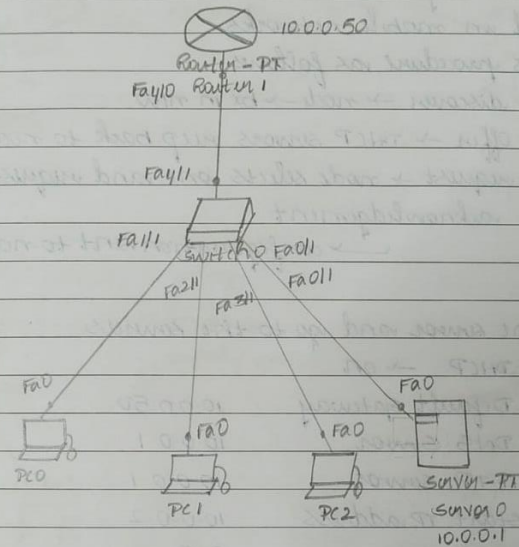 10.0.0.50
Router-PT
Fa4/0 Router1
Fa4/1
Fa1/1
Switch0 Fa0/1
Fa2/1
Fa3/1
Fa0/1
Fa0
Fa0
Fa0
Fa0
PC0
PC1
PC2
Server-PT
Server0
10.0.0.1